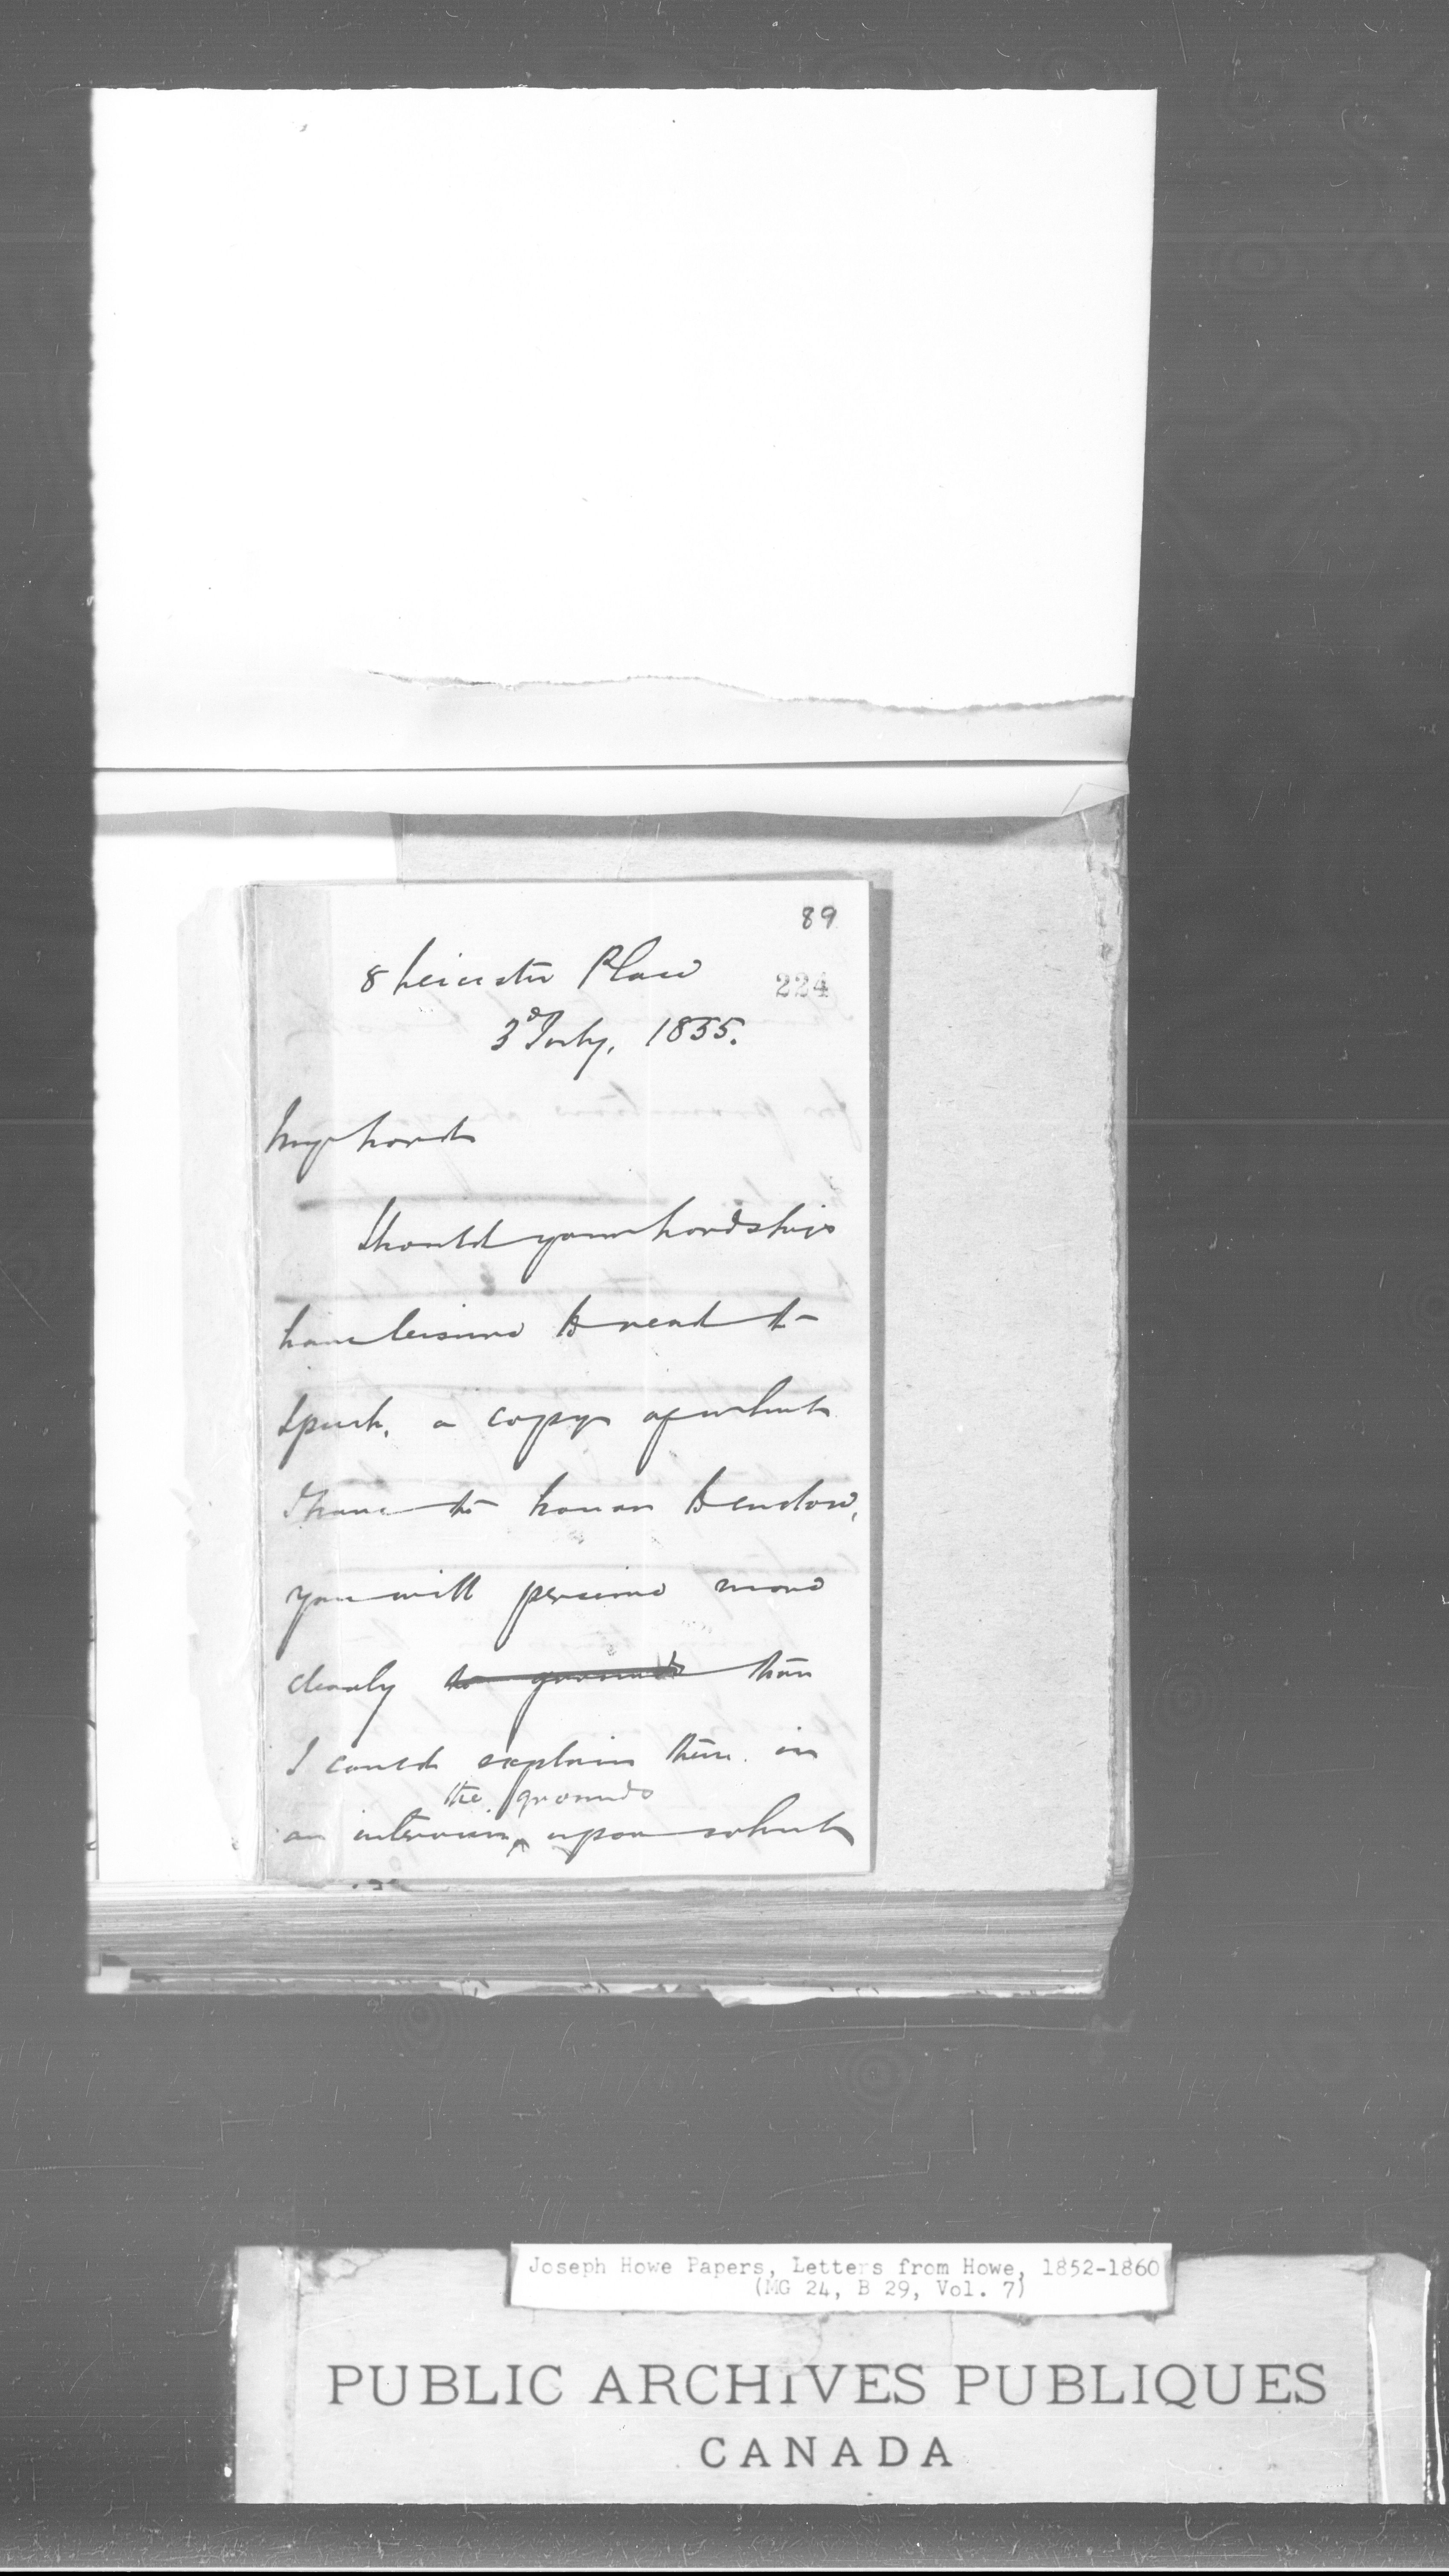 89
8 Leicester Place
224
3d July, 1855.
My Lord
Should your Lordship
have leisure to read the
Speech, a copy of which
I have the honor to enclose,
you will perceive more
clearly the grounds than
I could explain them in
the grounds
an interview, upon which
Joseph Howe Papers, Letters from Howe, 1852-1860
(MG 24, B 29, Vol. 7)
PUBLIC ARCHIVES PUBLIQUES
CANADA